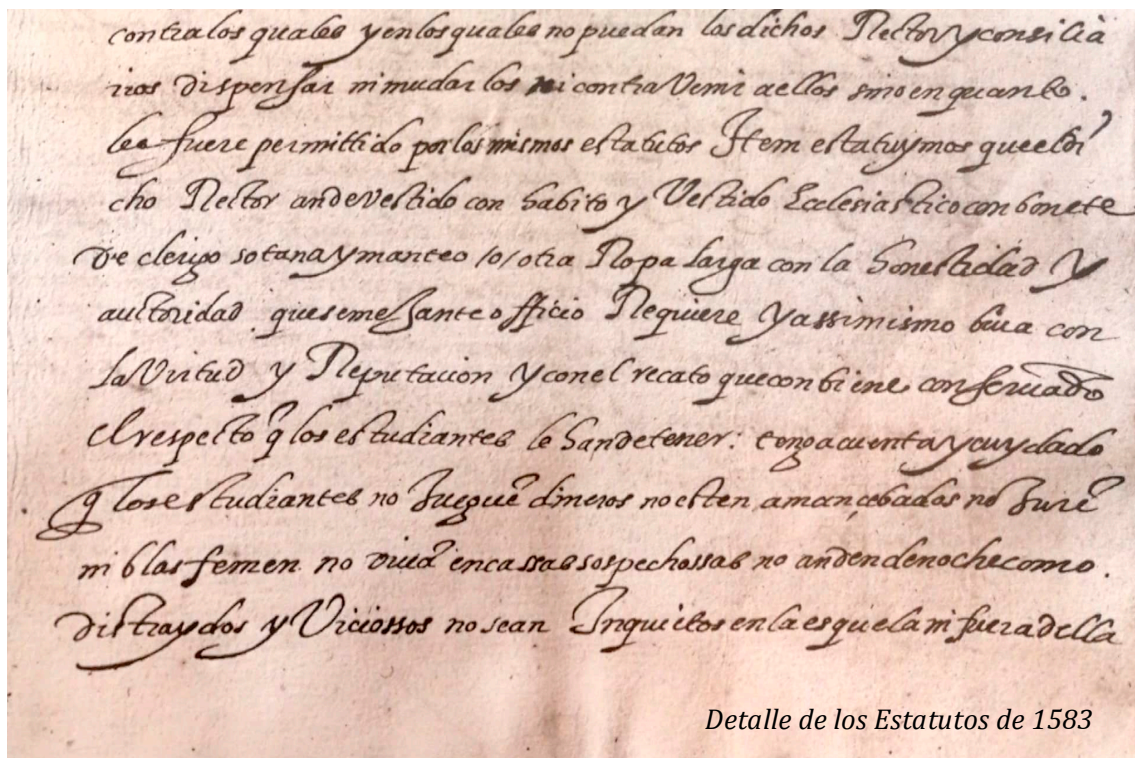 contra los quales y en los quales no puedan los dichos Rector y consilia
rios dispensar ni mudar los ni contravenir a ellos sino en quanto.
les fuere permittido por los mismos estatutos Item estatuymos que el di
cho Rector ande vestido con habito y vestido Ecclesiastico con bonete
de clerigo sotana y manteo /o/ otra Ropa larga con la honestidad y
auctoridad que semejante officio Requiere y assimismo biva con
la virtud y Reputacion y con el recato que conbiene conservado
el respecto q̃ los estudiantes le han de tener: tenga cuenta y cuydado
q̃ los estudiantes no Jueguẽ dineros no esten amançebados no Jurẽ
ni blasfemen no vivã en cassas sospechossas no anden de noche como.
distraydos y Viciossos no sean Inquietos en la esquela ni fuera della
Detalle de los Estatutos de 1583